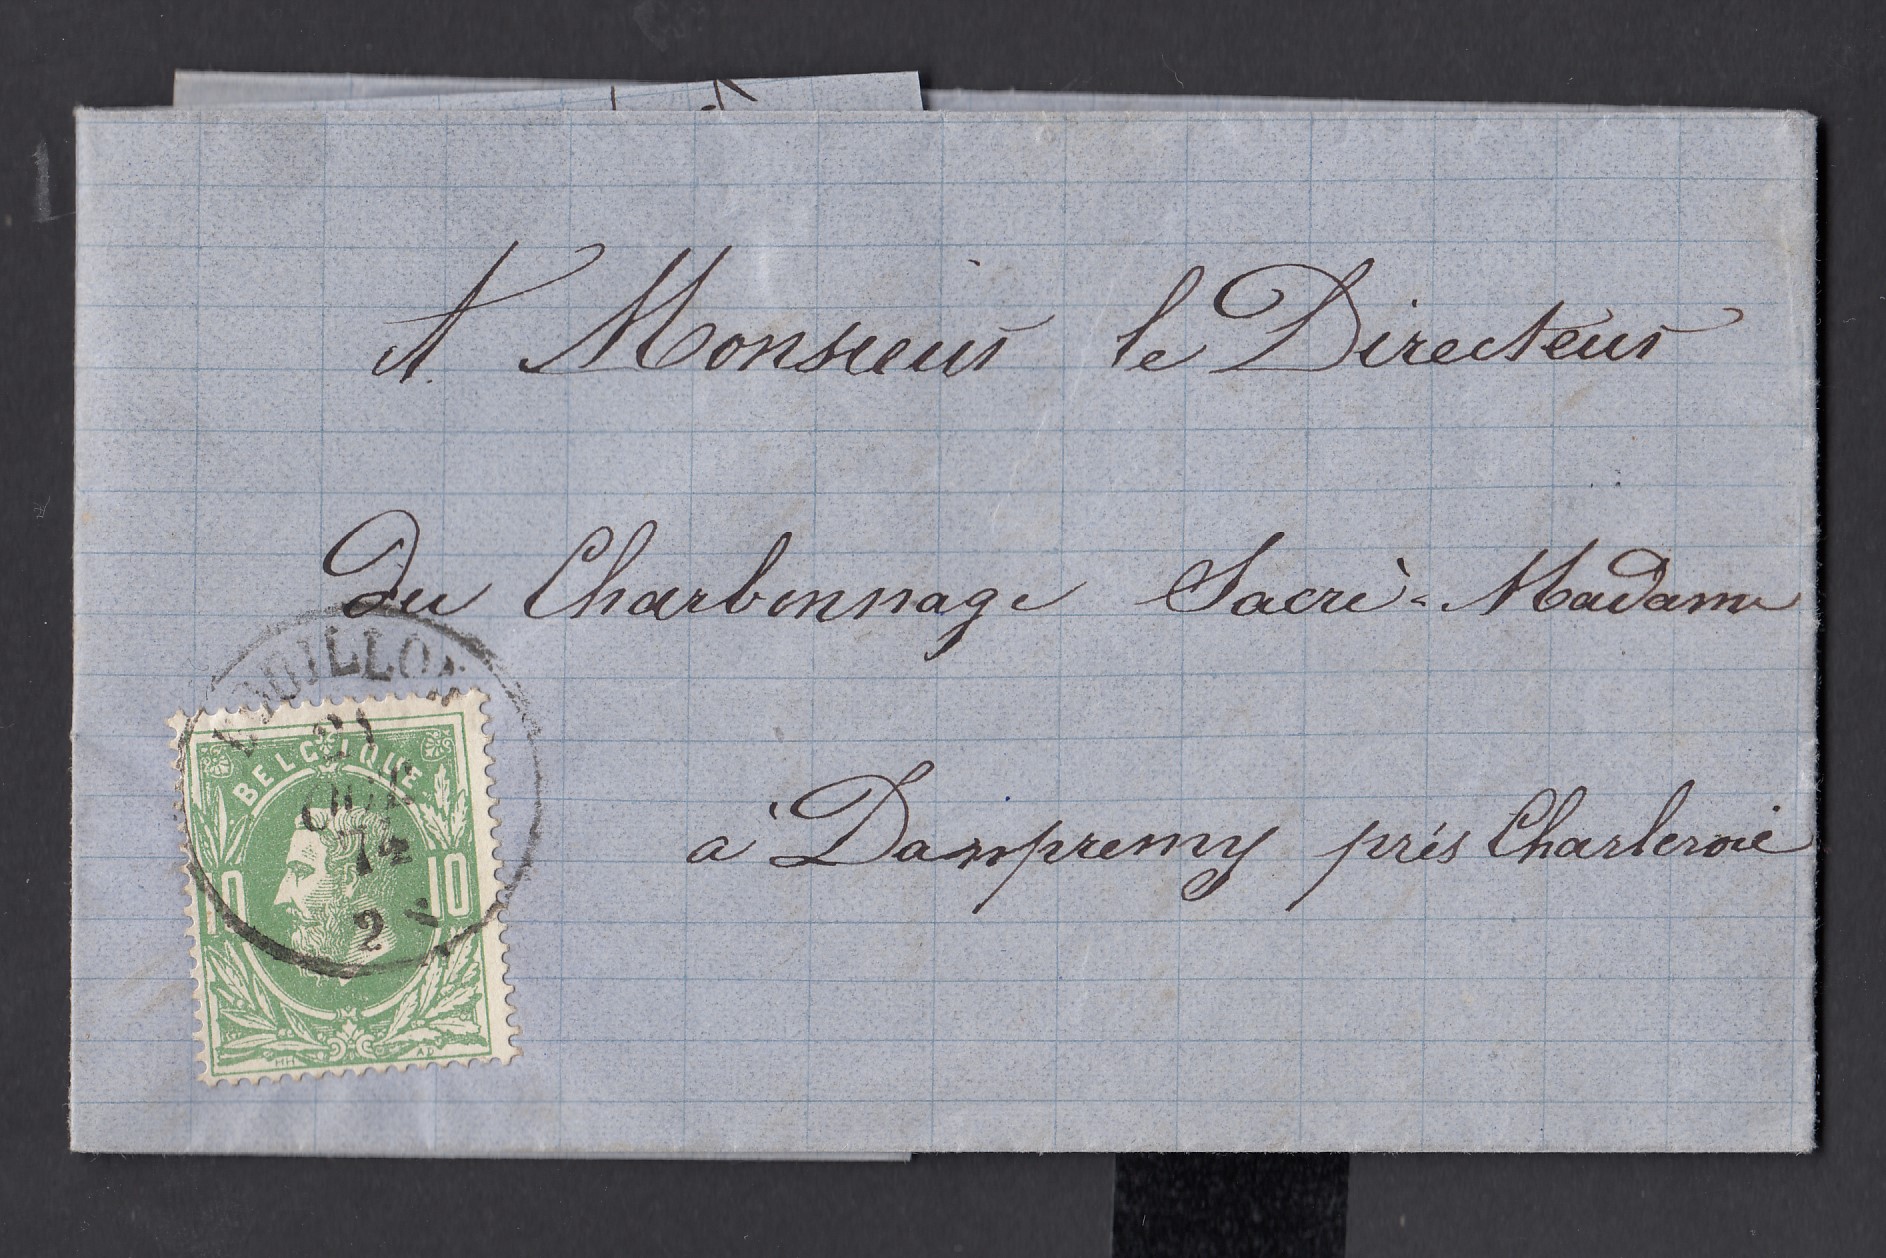 A. Monsieur le Directeur
du Charbonnage Sacré-Madame
à Dampremy près Charleroie
BOUILLON
21
OCT
74
2
BELGIQUE
10 10